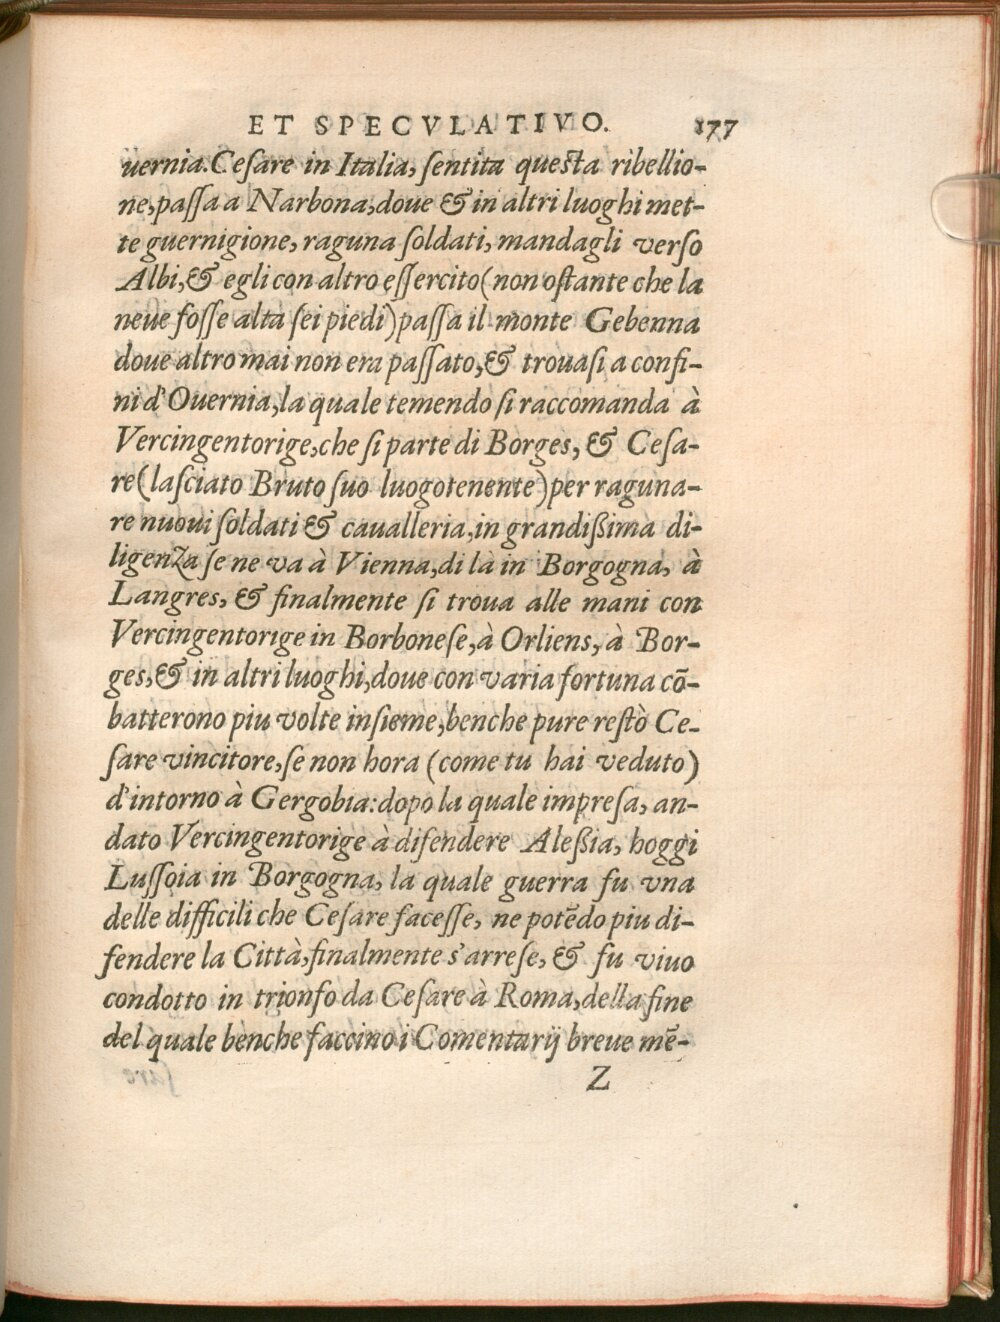 ET SPECVLATIVO. 177
uernia. Cesare in Italia, sentita questa ribellio-
ne, passa à Narbona, doue & in altri luoghi met-
te guernigione, raguna soldati, mandagli verso
Albi, & egli con altro essercito (non ostante che la
neue fosse alta sei piedi) passa il monte Gebenna
doue altro mai non era passato, & trouasi a confi-
ni d'Ouernia, la quale temendo si raccomanda à
Vercingentorige, che si parte di Borges, & Cesa-
re (lasciato Bruto suo luogotenente) per raguna-
re nuoui soldati & caualleria, in grandißima di-
ligenza se ne va à Vienna, di là in Borgogna, à
Langres, & finalmente si troua alle mani con
Vercingentorige in Borbonese, à Orliens, à Bor-
ges, & in altri luoghi, doue con varia fortuna cõ-
batterono piu volte insieme, benche pure restò Ce-
sare vincitore, se non hora (come tu hai veduto)
d'intorno à Gergobia: dopo la quale impresa, an-
dato Vercingentorige à difendere Aleßia, hoggi
Lussoia in Borgogna, la quale guerra fu vna
delle difficili che Cesare facesse, ne potẽdo piu di-
fendere la Città, finalmente s'arrese, & fu viuo
condotto in trionfo da Cesare à Roma, della fine
del quale benche faccino i Comentarij breue mẽ-
Z